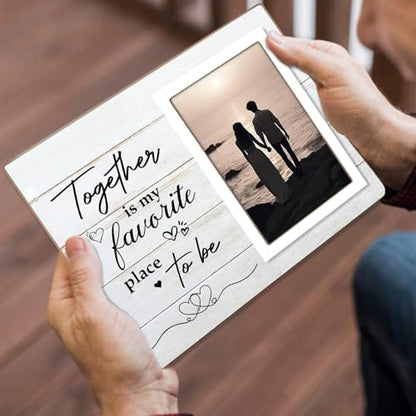 Together
is my
favorite
place
to be